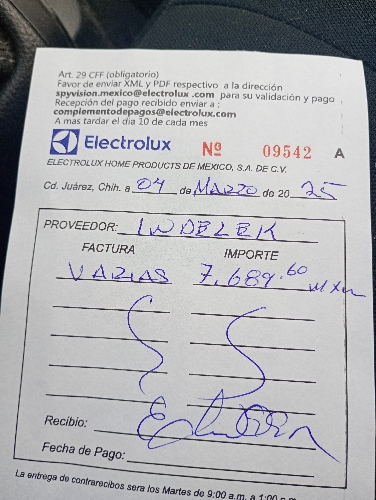 Art. 29 CFF (obligatorio)
Favor de enviar XML y PDF respectivo a la dirección
spyvision.mexico@electrolux .com para su validación y pago
Recepción del pago recibido enviar a :
complementodepagos@electrolux.com
A mas tardar el dia 10 de cada mes
Electrolux Nº 09542 A
ELECTROLUX HOME PRODUCTS DE MEXICO, S.A. DE C.V.
Cd. Juárez, Chih. a 04 de Marzo de 2025
PROVEEDOR: INDELEK
FACTURA IMPORTE
VARIAS 7,689.60 MXN
Recibio:
Fecha de Pago:
La entrega de contrarecibos sera los Martes de 9:00 a.m. a 1:00